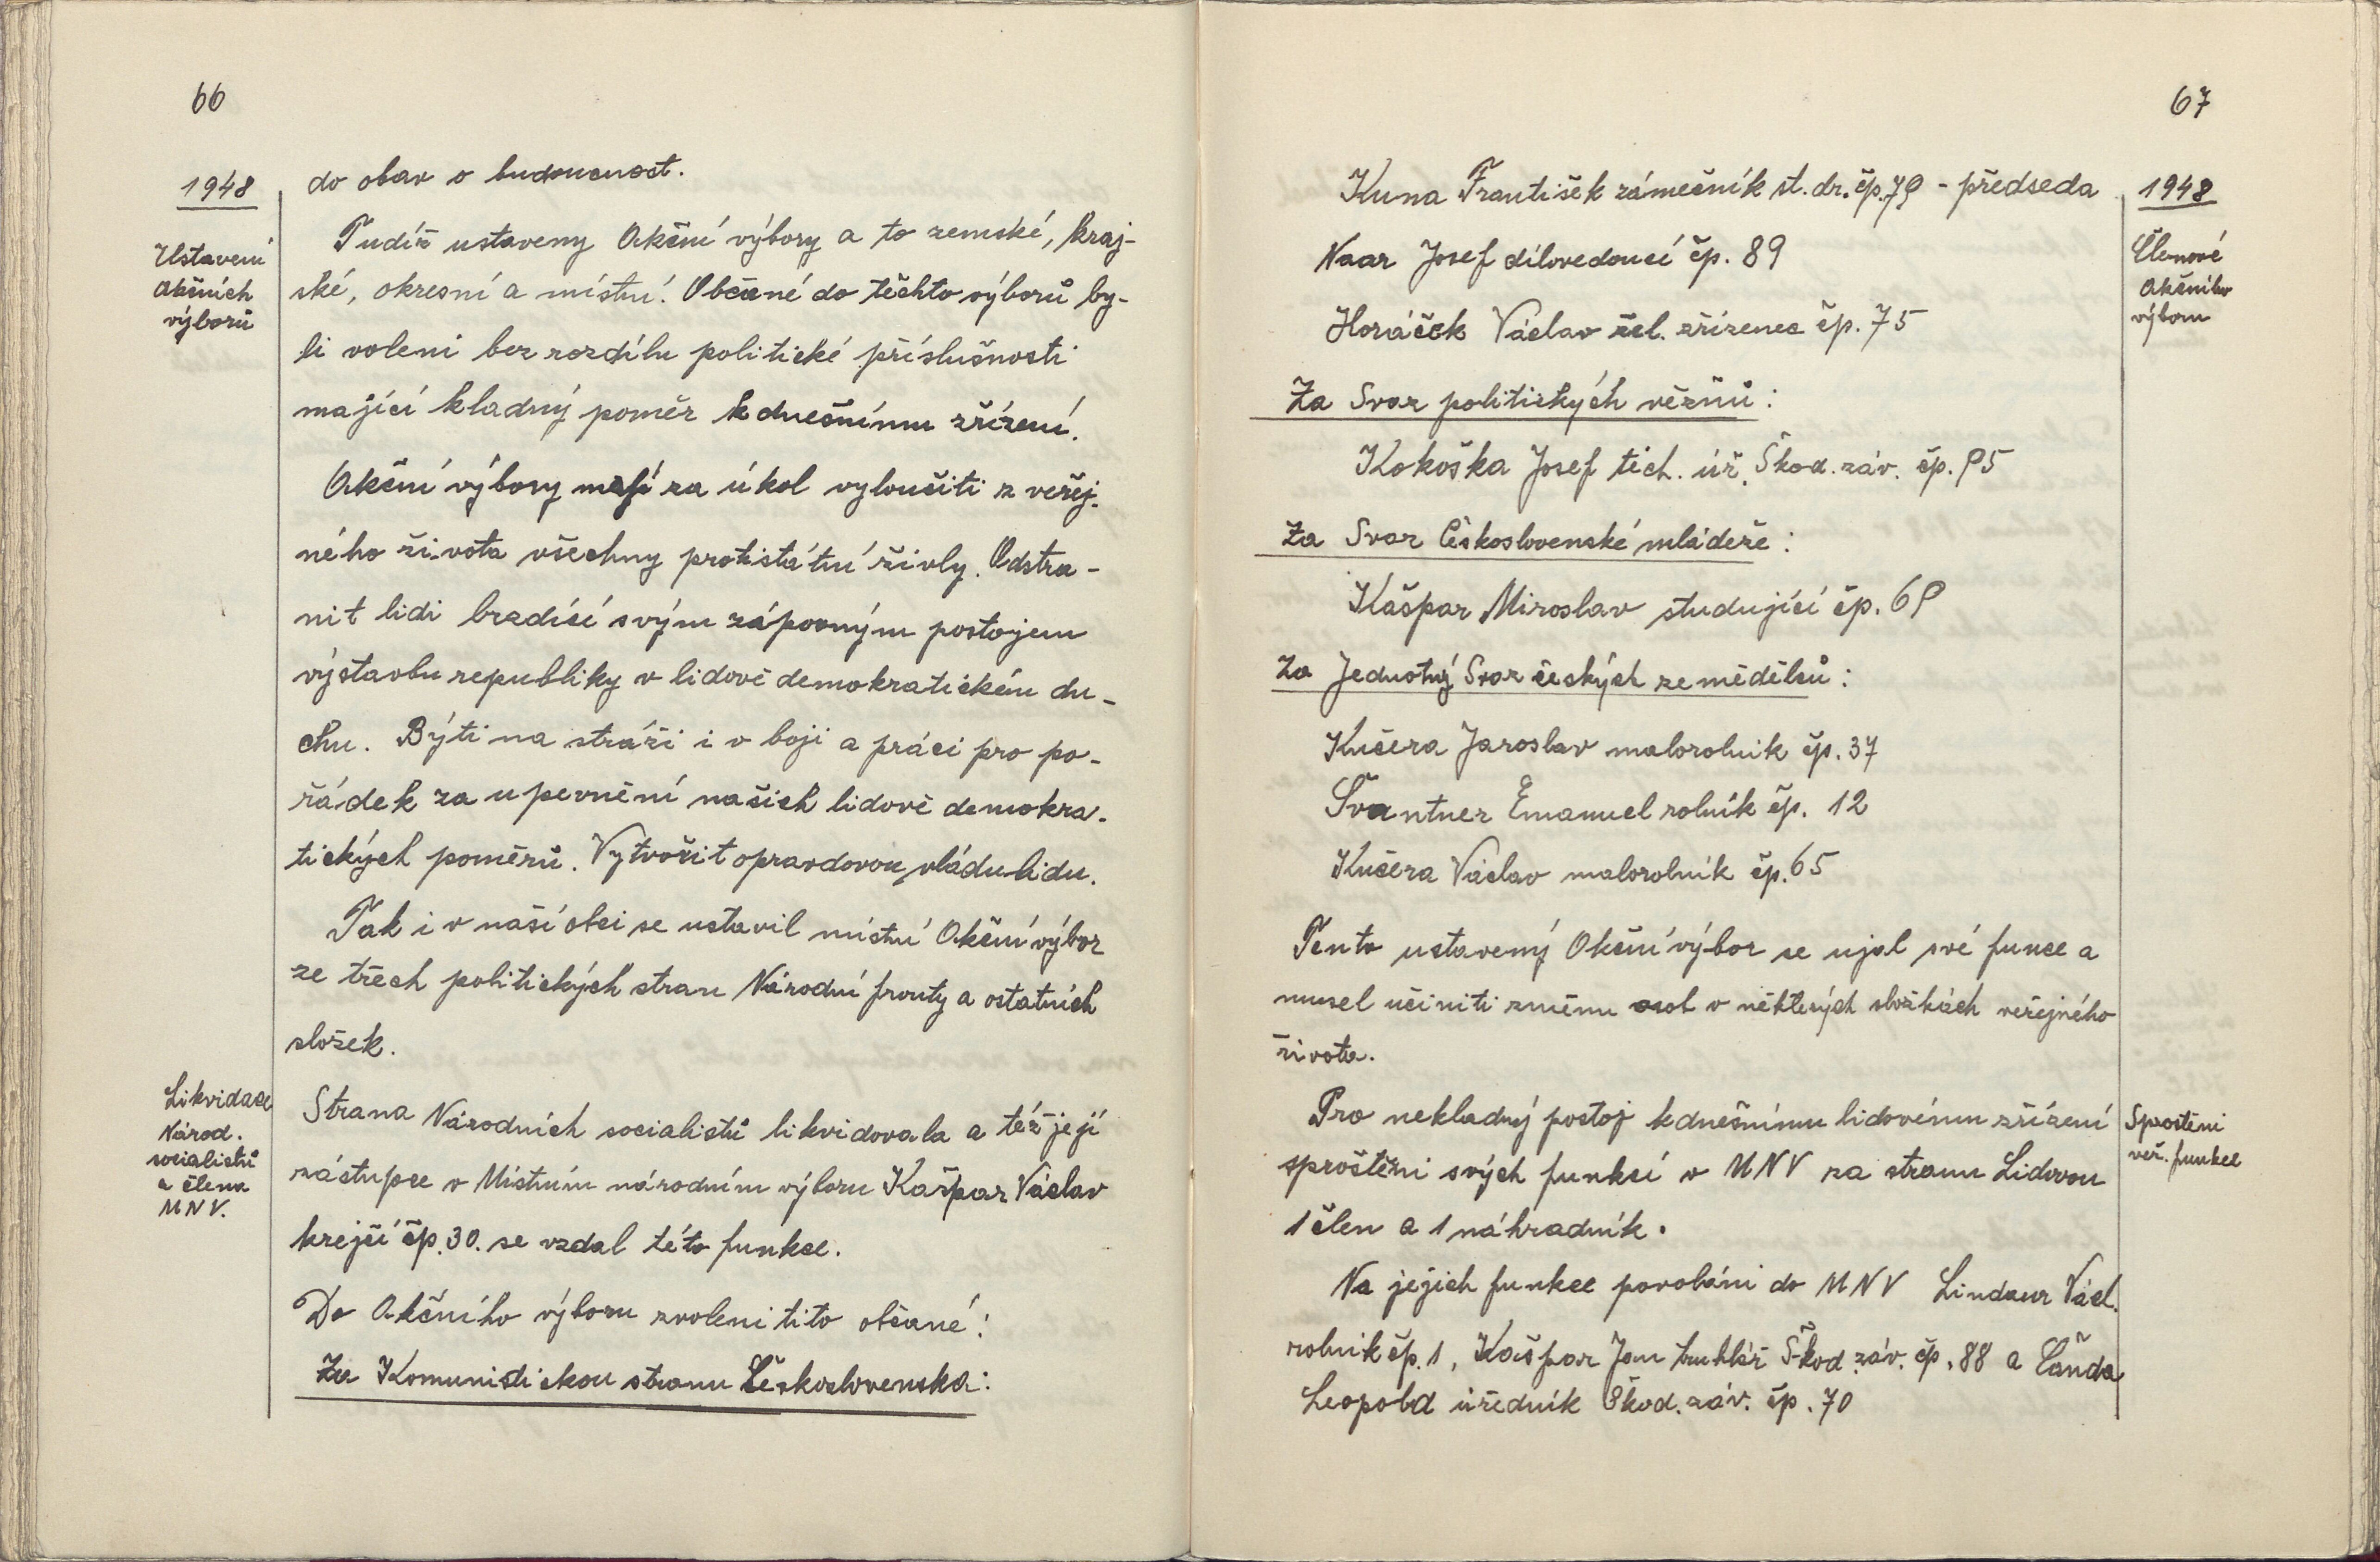 66
1948
do obav o budoucnost.
Ustavení
Akčních
výborů
Tudíž ustaveny Akční výbory a to zemské, kraj-
ské, okresní a místní. Občané do těchto výborů by-
li voleni bez rozdílu politické příslušnosti
mající kladný poměr k dnešnímu zřízení.
Akční výbory mají za úkol vyloučiti z veřej-
ného života všechny protistátní živly. Odstra-
nit lidi brzdící svým záporným postojem
výstavbu republiky v lidově demokratickém du-
chu. Býti na stráži i v boji a práci pro po-
řádek za upevnění našich lidově demokra-
tických poměrů. Vytvořit opravdovou vládu lidu.
Tak i v naší obci se ustavil místní Akční výbor
ze třech politických stran Národní fronty a ostatních
složek.
Likvidace
Národ.
socialistů
a člena
MNV.
Strana Národních socialistů likvidovala a též její
zástupce v Místním národním výboru Kašpar Václav
krejčí čp. 30. se vzdal této funkce.
Do Akčního výboru zvoleni tito občané:
Za Komunistickou stranu Československa:
67
1948
Kuna František zámečník st. dr. čp. 79 - předseda
Členové
Akčního
výboru
Naar Josef dílovedoucí čp. 89
Horáček Václav žel. zřízenec čp. 75
Za Svaz politických vězňů:
Kokoška Josef tech. úř. Škod. záv. čp. 95
Za Svaz Československé mládeže:
Kašpar Miroslav studující čp. 69
Za Jednotný Svaz českých zemědělců:
Kučera Jaroslav malorolník čp. 37
Švantner Emanuel rolník čp. 12
Kučera Václav malorolník čp. 65
Tento ustavený Akční výbor se ujal své funce a
musel učiniti změnu osob v některých složkách veřejného
života.
Sproštěni
veř. funkce
Pro nekladný postoj k dnešnímu lidovému zřízení
sproštěni svých funkcí v MNV za stranu Lidovou
1 člen a 1 náhradník.
Na jejich funkce povoláni do MNV Lindaur Václ.
rolník čp. 1, Kašpar Jan truhlář Škod. záv. čp. 88 a Čanda
Leopold úředník Škod. záv. čp. 70